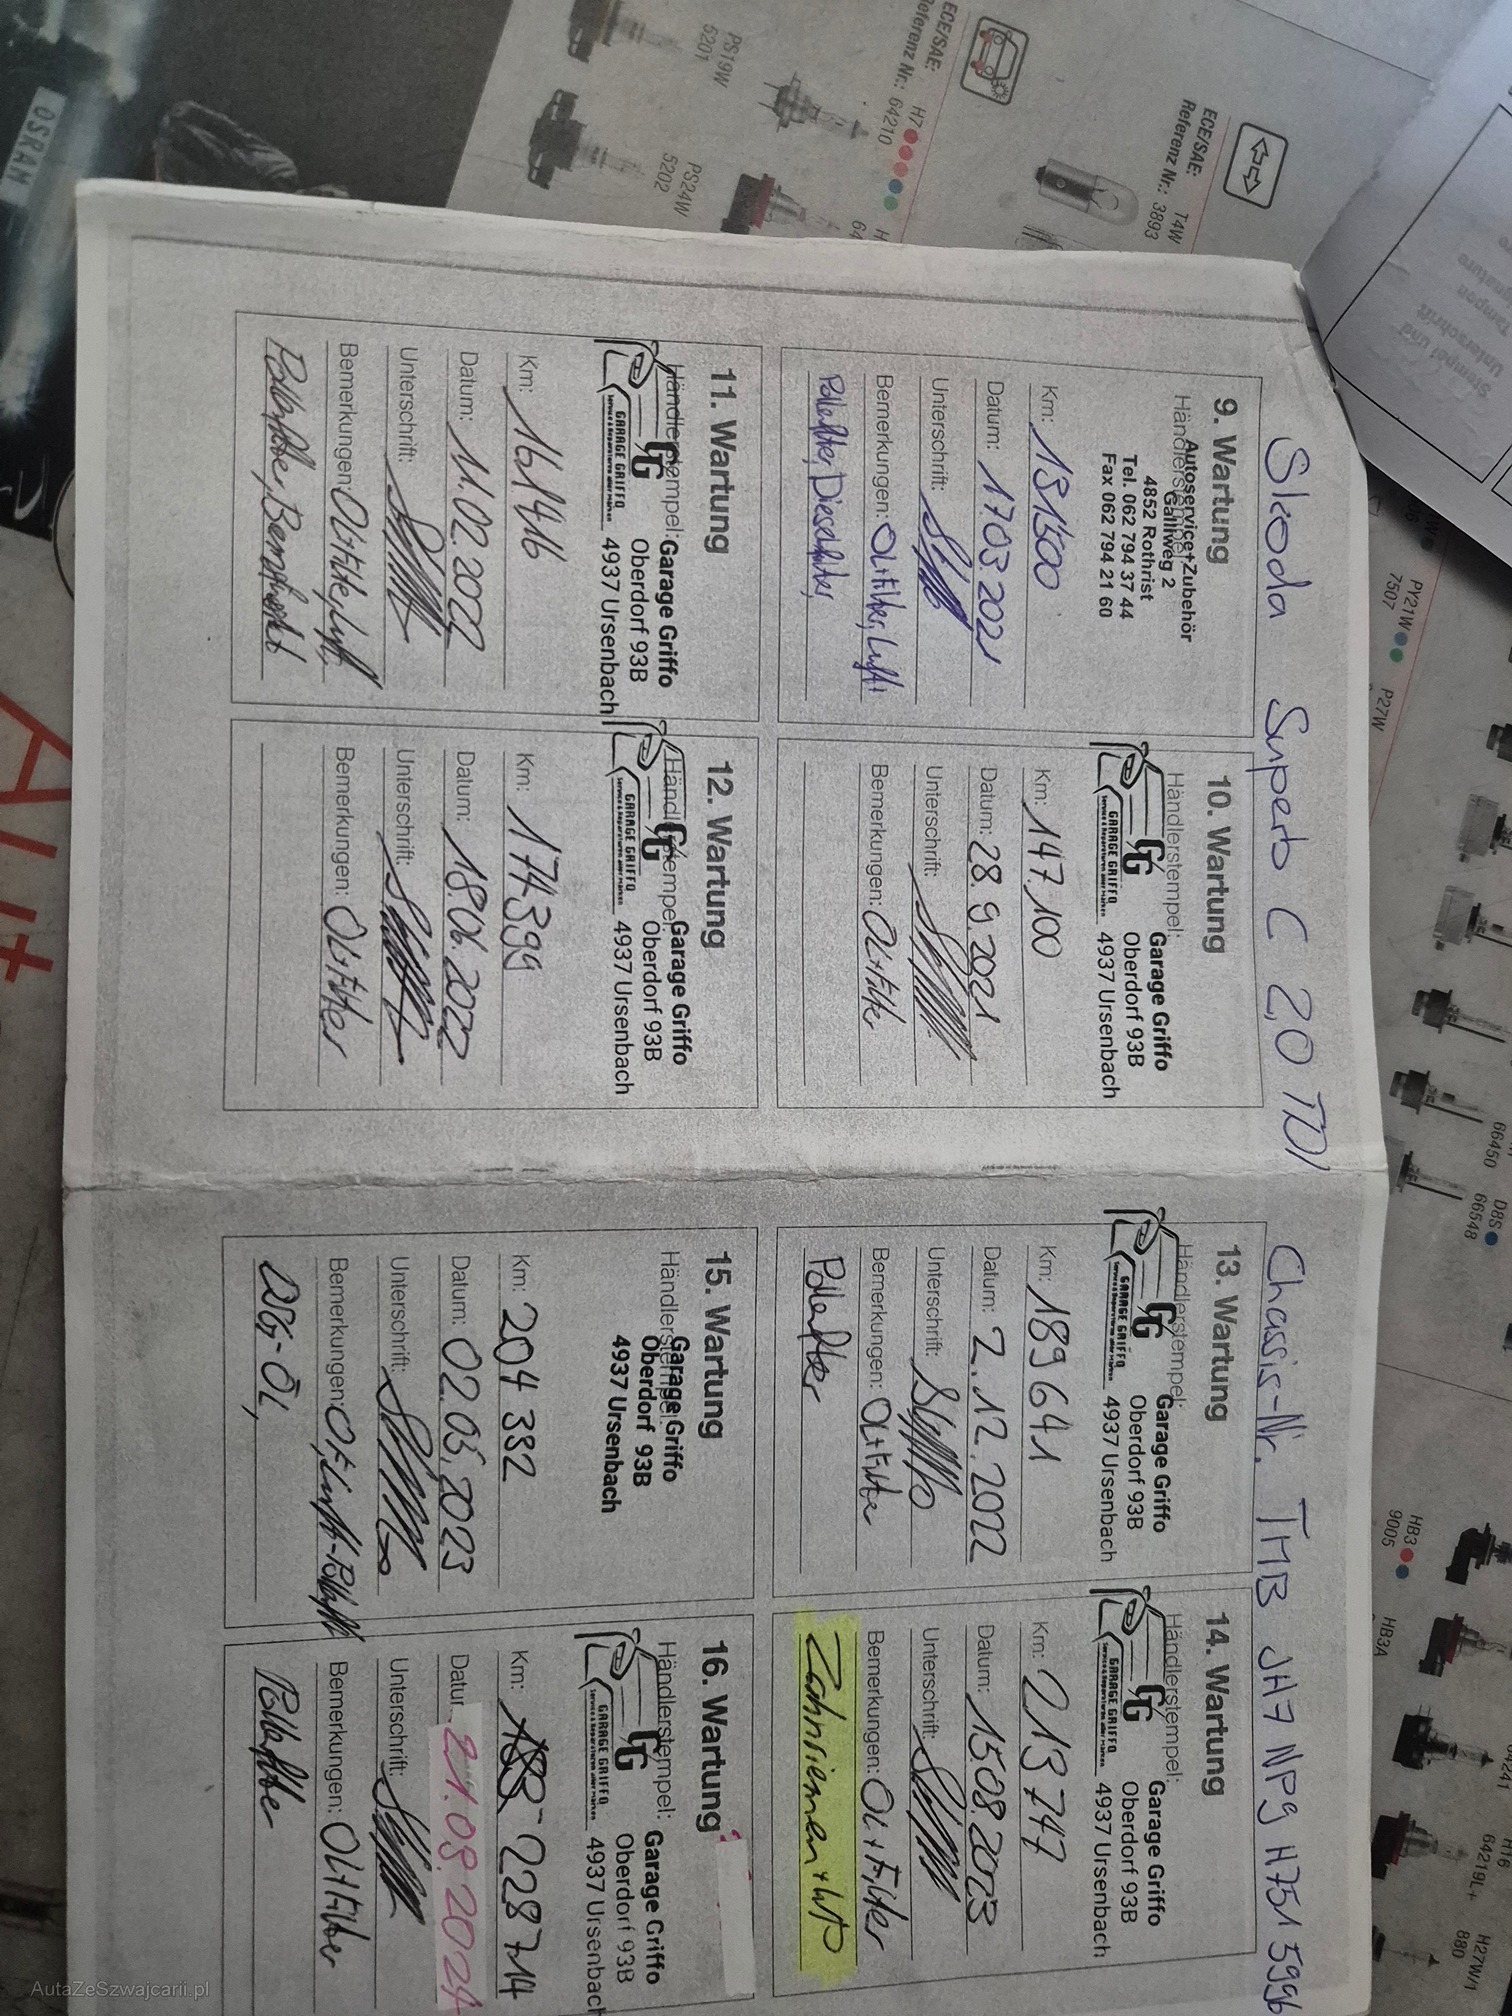 Skoda Superb C 2,0 TDI
Chassis-Nr. TMB JH7 NP9 H7515996
9. Wartung
Händlerstempel:
Autoservice+Zubehör
Galiweg 2
4852 Rothrist
Tel. 062 794 37 44
Fax 062 794 21 60
Km: 131500
Datum: 17.03 2021
Unterschrift:
Bemerkungen: ÖL+Filter, Luft,
Pollenfilter, Dieselfilter,
10. Wartung
Händlerstempel:
GG
GARAGE GRIFFO
Garage Griffo
Oberdorf 93B
4937 Ursenbach
Km: 147,100
Datum: 28.9.2021
Unterschrift:
Bemerkungen: ÖL+Filter
11. Wartung
Händlerstempel:
GG
GARAGE GRIFFO
Garage Griffo
Oberdorf 93B
4937 Ursenbach
Km: 161446
Datum: 11.02.2022
Unterschrift:
Bemerkungen: ÖL+Filter, Luft,
Pollenfilter,
12. Wartung
Händlerstempel:
GG
GARAGE GRIFFO
Garage Griffo
Oberdorf 93B
4937 Ursenbach
Km: 174399
Datum: 18.06.2022
Unterschrift:
Bemerkungen: ÖL+Filter
13. Wartung
Händlerstempel:
GG
GARAGE GRIFFO
Garage Griffo
Oberdorf 93B
4937 Ursenbach
Km: 189641
Datum: 2.12.2022
Unterschrift:
Bemerkungen: ÖL+Filter
Pollenfilter
14. Wartung
Händlerstempel:
GG
GARAGE GRIFFO
Garage Griffo
Oberdorf 93B
4937 Ursenbach
Km: 213747
Datum: 15.08.2023
Unterschrift:
Bemerkungen: ÖL+Filter
Zahnriemen+WP
15. Wartung
Händlerstempel:
Garage Griffo
Oberdorf 93B
4937 Ursenbach
Km: 204 382
Datum: 02.03.2023
Unterschrift:
Bemerkungen:
DSG-ÖL,
16. Wartung
Händlerstempel:
GG
GARAGE GRIFFO
Garage Griffo
Oberdorf 93B
4937 Ursenbach
Km: 228714
Datum: 21.08.2024
Unterschrift:
Bemerkungen: ÖL+Filter
Pollenfilter
OSRAM
PS19W
5201
PS24W
5202
ECE/SAE: H7
Referenz Nr.: 64210
ECE/SAE: T4W
Referenz Nr.: 3893
Stempel und
Unterschrift
PY21W
7507
P27W
66450
D8S
66548
HB3
9005
HB3A
H16
64219L+
H27W/1
880
AutaZeSzwajcarii.pl